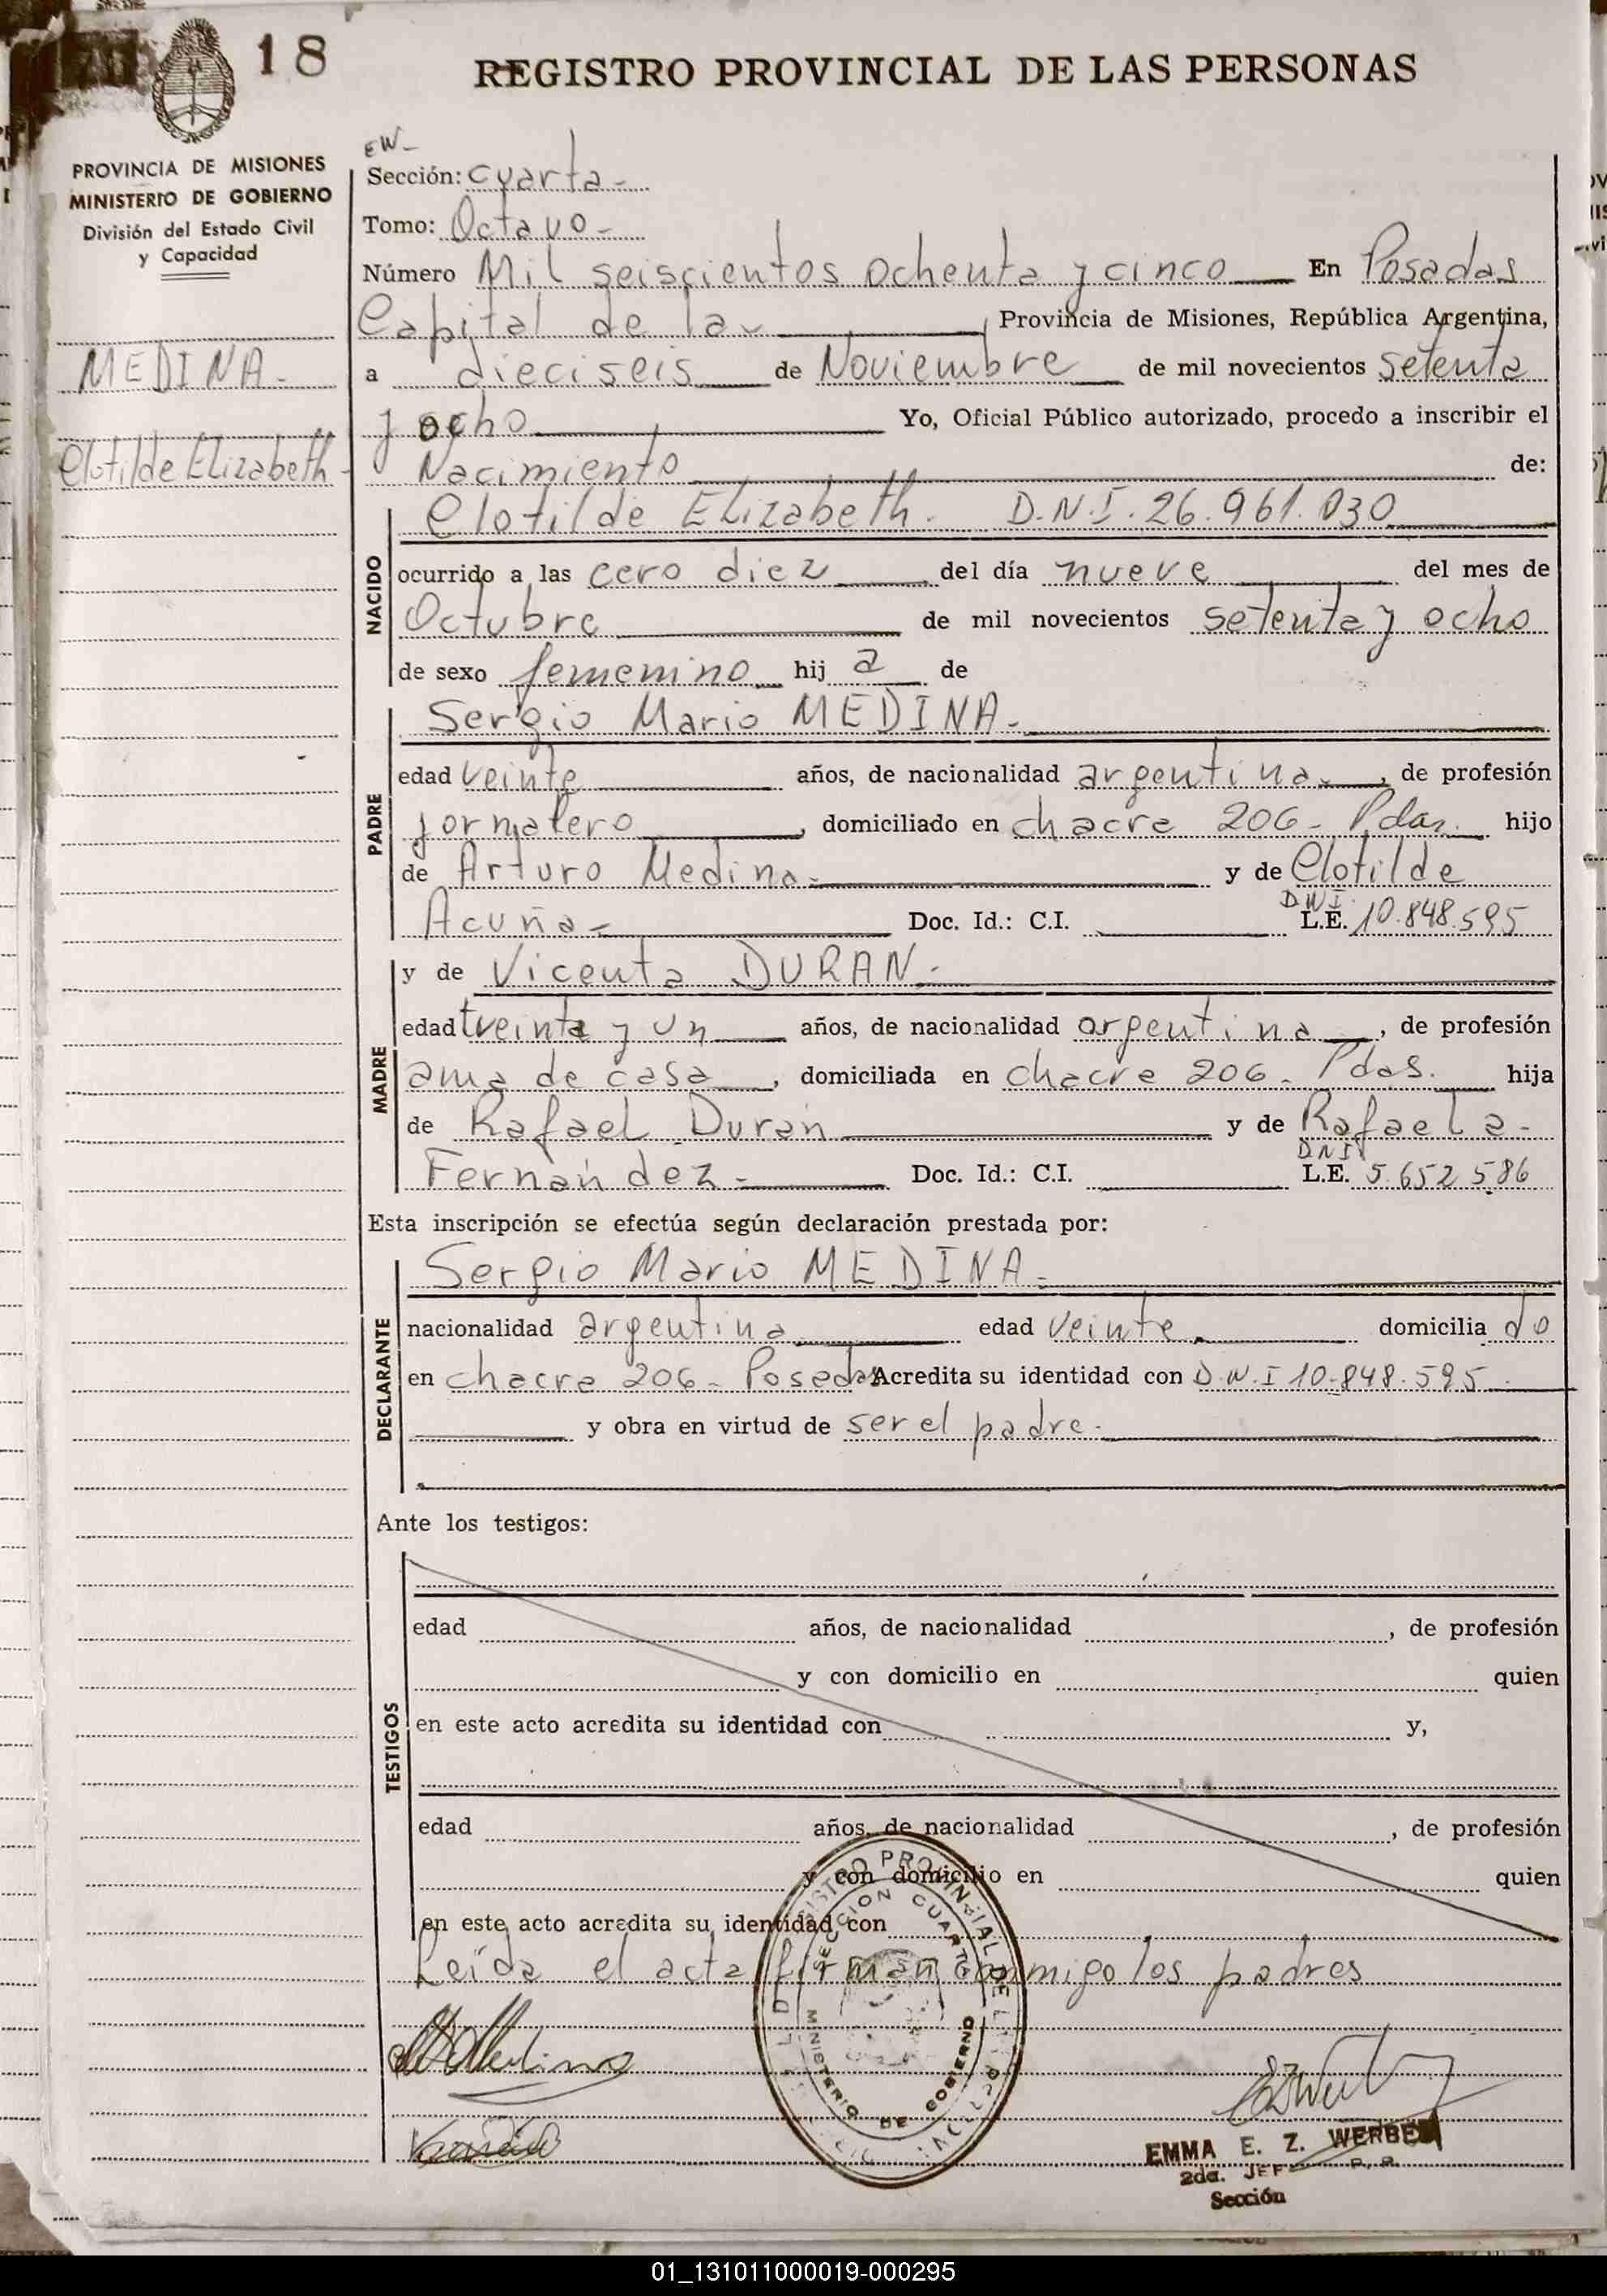 18
REGISTRO PROVINCIAL DE LAS PERSONAS
PROVINCIA DE MISIONES
MINISTERIO DE GOBIERNO
División del Estado Civil
y Capacidad
MEDINA -
Clotilde Elizabeth -
EW-
Sección: Cuarta -
Tomo: Octavo -
Número Mil seiscientos ochenta y cinco En Posadas
Capital de la - Provincia de Misiones, República Argentina,
a dieciseis de Noviembre de mil novecientos setenta
y ocho Yo, Oficial Público autorizado, procedo a inscribir el
Nacimiento de:
NACIDO
Clotilde Elizabeth. D.N.I. 26.961.030
ocurrido a las cero diez del día nueve del mes de
Octubre de mil novecientos setenta y ocho
de sexo femenino hij a de
PADRE
Sergio Mario MEDINA -
edad veinte años, de nacionalidad argentina, de profesión
jornalero, domiciliado en chacra 206 - Pdas. hijo
de Arturo Medina - y de Clotilde
Acuña - Doc. Id.: C.I. DNI L.E. 10.848.595
MADRE
y de Vicenta DURAN -
edad treinta y un años, de nacionalidad argentina, de profesión
ama de casa, domiciliada en chacra 206 - Pdas. hija
de Rafael Durán y de Rafaela -
Fernández - Doc. Id.: C.I. DNI L.E. 5.652.586
Esta inscripción se efectúa según declaración prestada por:
DECLARANTE
Sergio Mario MEDINA -
nacionalidad argentina edad veinte domicilia do
en chacra 206 - Posadas Acredita su identidad con D.N.I 10.848.595
y obra en virtud de ser el padre -
Ante los testigos:
TESTIGOS
edad años, de nacionalidad , de profesión
y con domicilio en quien
en este acto acredita su identidad con y,
edad años, de nacionalidad , de profesión
y con domicilio en quien
en este acto acredita su identidad con
Leída el acta firman conmigo los padres
SECCION CUARTA
MINISTERIO DE GOBIERNO
EMMA E. Z. WERBER
2da. JEF
Sección
01_131011000019-000295